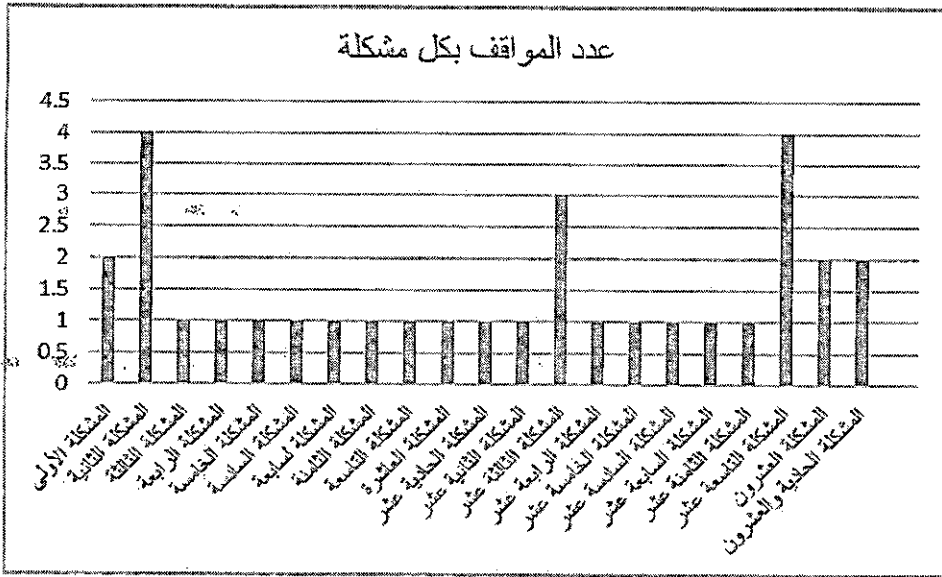 عدد المواقف بكل مشكلة
4.5
4
3.5
3
2.5
2
1.5
1
0.5
0
المشكلة الأولى
المشكلة الثانية
المشكلة الثالثة
المشكلة الرابعة
المشكلة الخامسة
المشكلة السادسة
المشكلة لسابعة
المشكلة الثامنة
المشكلة التاسعة
المشكلة العاشرة
المشكلة الحادية عشر
المشكلة الثانية عشر
المشكلة الثالثة عشر
المشكلة الرابعة عشر
المشكلة الخامسة عشر
المشكلة السادسة عشر
المشكلة السابعة عشر
المشكلة الثامنة عشر
المشكلة التاسعة عشر
المشكلة العشرون
المشكلة الحادية والعشرون